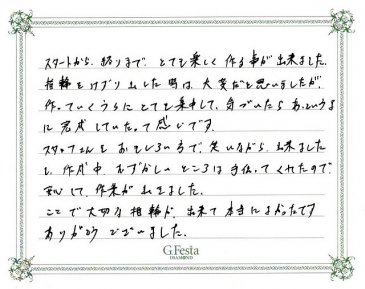 スタートから、終りまで、とても楽しく作る事が出来ました。
指輪をけずり出した時は、大変だと思いましたが、
作っていくうちにとても集中して、気づいたらあっというま
に完成していたって感じです。
スタッフさんもおもしろい方で、笑いながら、出来ました
し、作成中、むずかしいところは手伝ってくれたので、
安心して、作業が出きました。
ここで大切な指輪が、出来て本当によかったです
ありがとうございました。
G.Festa
DIAMOND